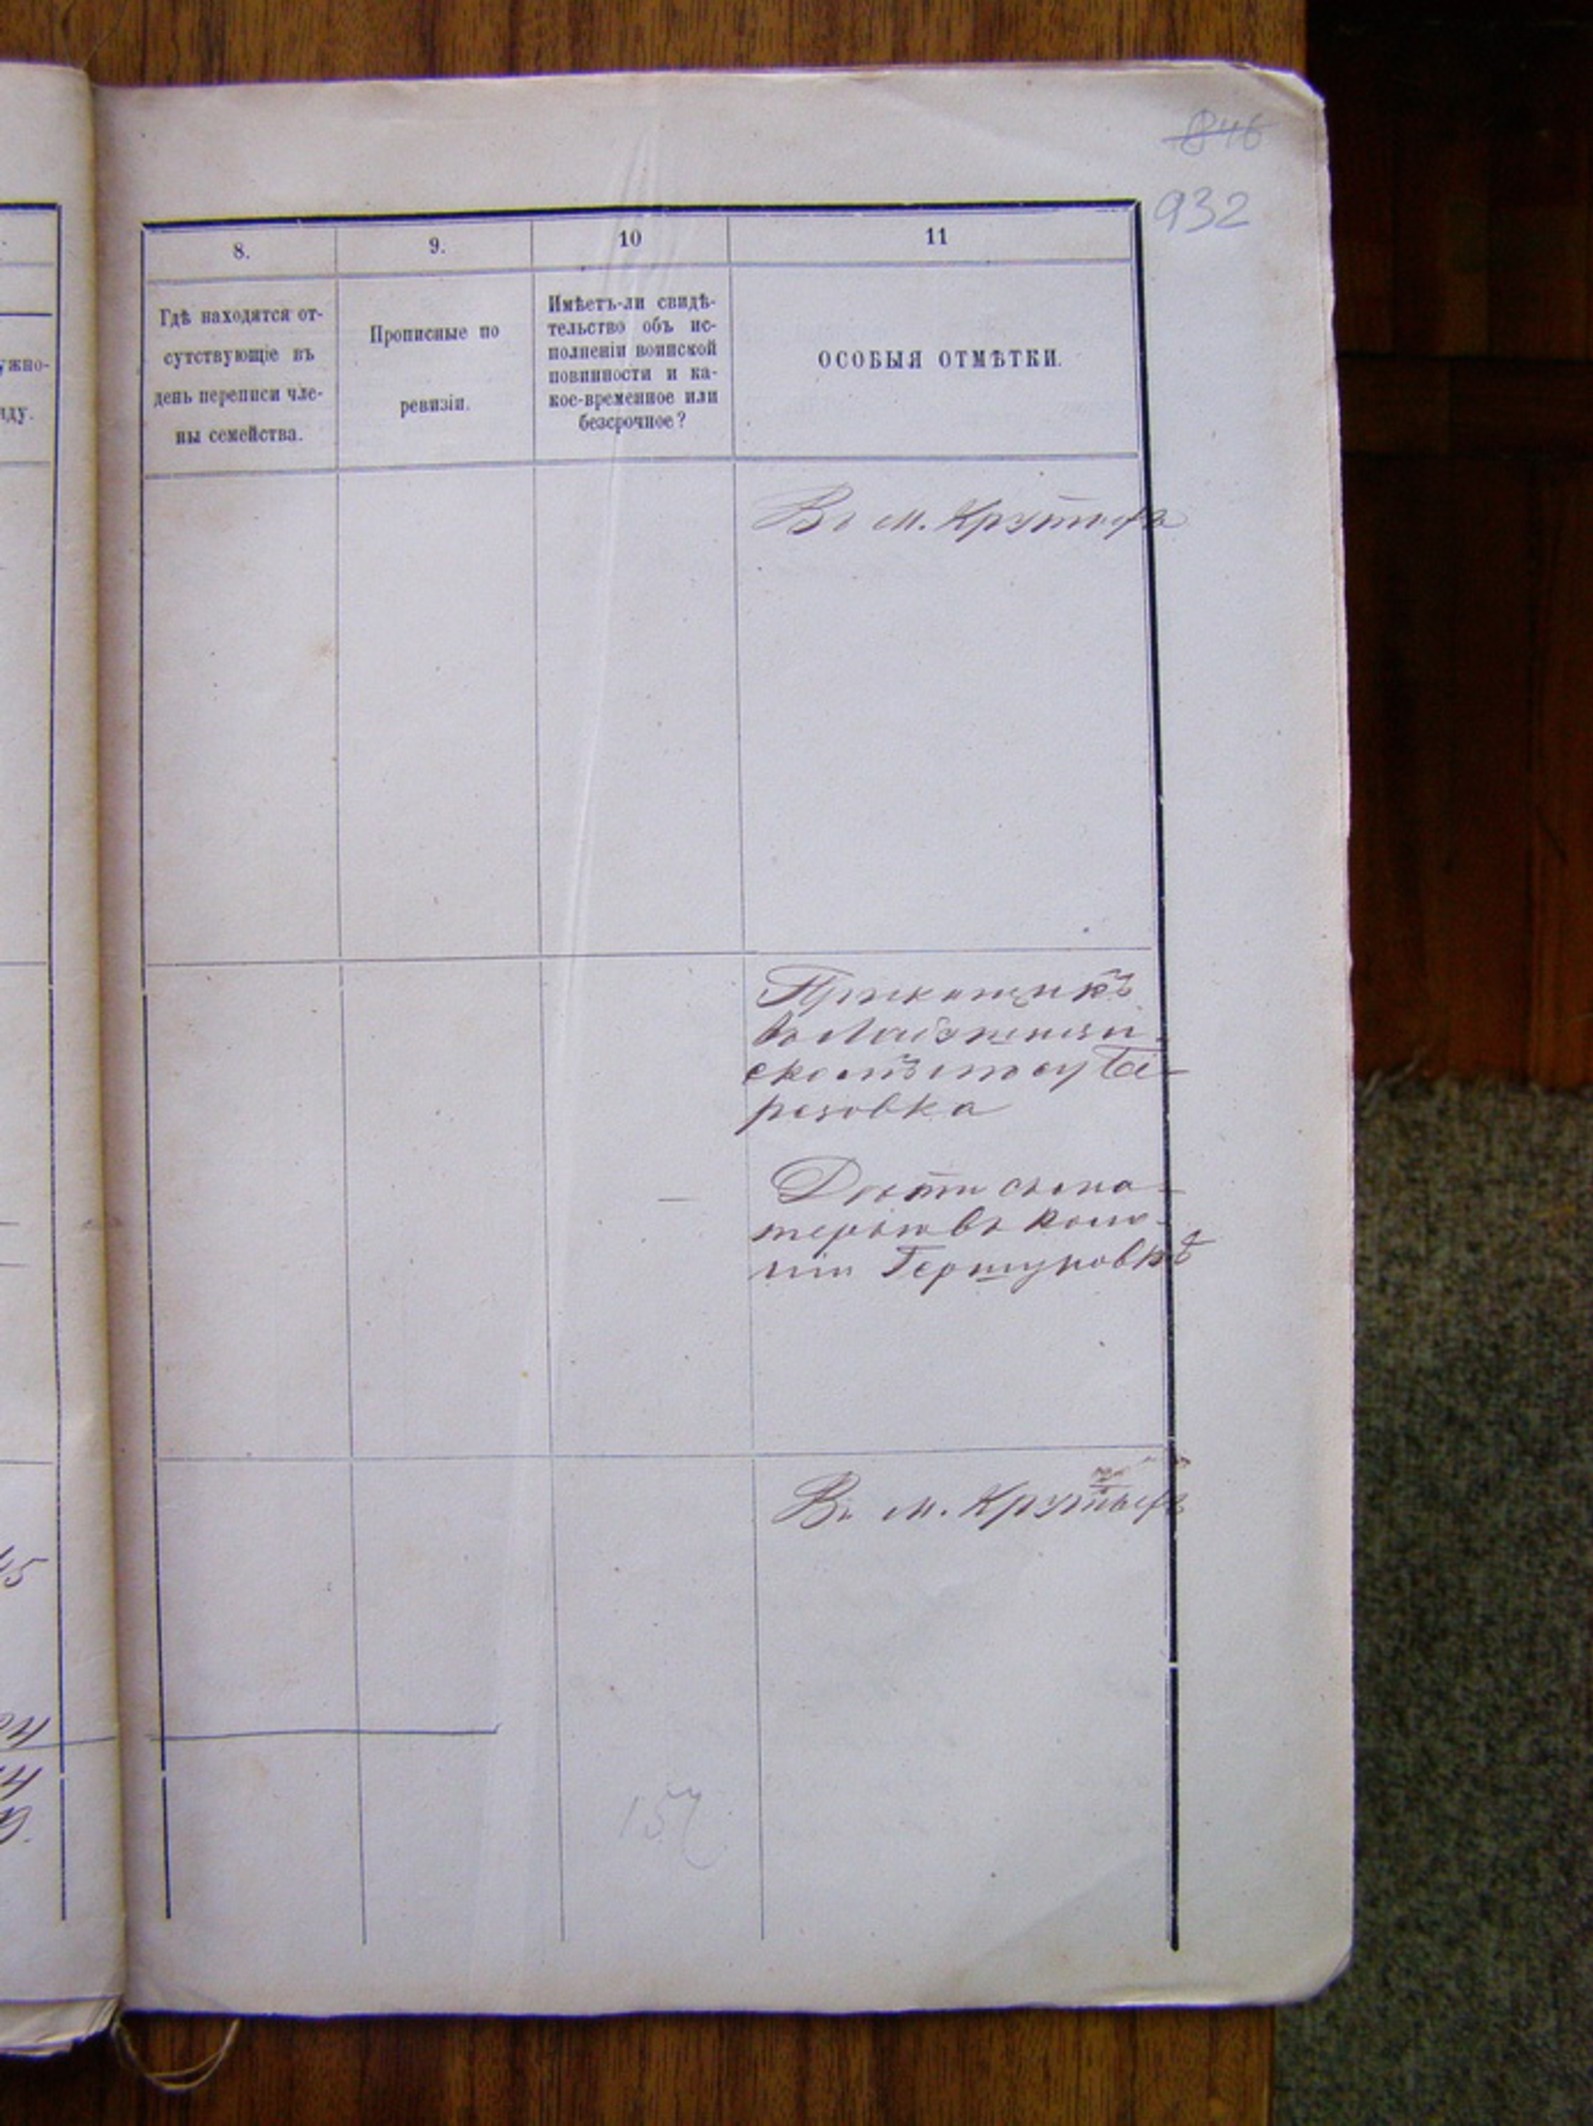 846
932
8.
9.
10
11
Гдѣ находятся от-
сутствующіе въ
день переписи чле-
ны семейства.
Прописные по
ревизіи.
Имѣетъ-ли свидѣ-
тельство объ ис-
полненіи воинской
повинности и ка-
кое-временное или
безсрочное?
ОСОБЫЯ ОТМѢТКИ.
ужно-
яду.
Въ м. Крутыхъ
Прикащикъ
въ
скомъ
резовка
Дѣти съ ма-
терью въ коло-
ніи Гершуновкѣ
Въ м. Крутыхъ
157